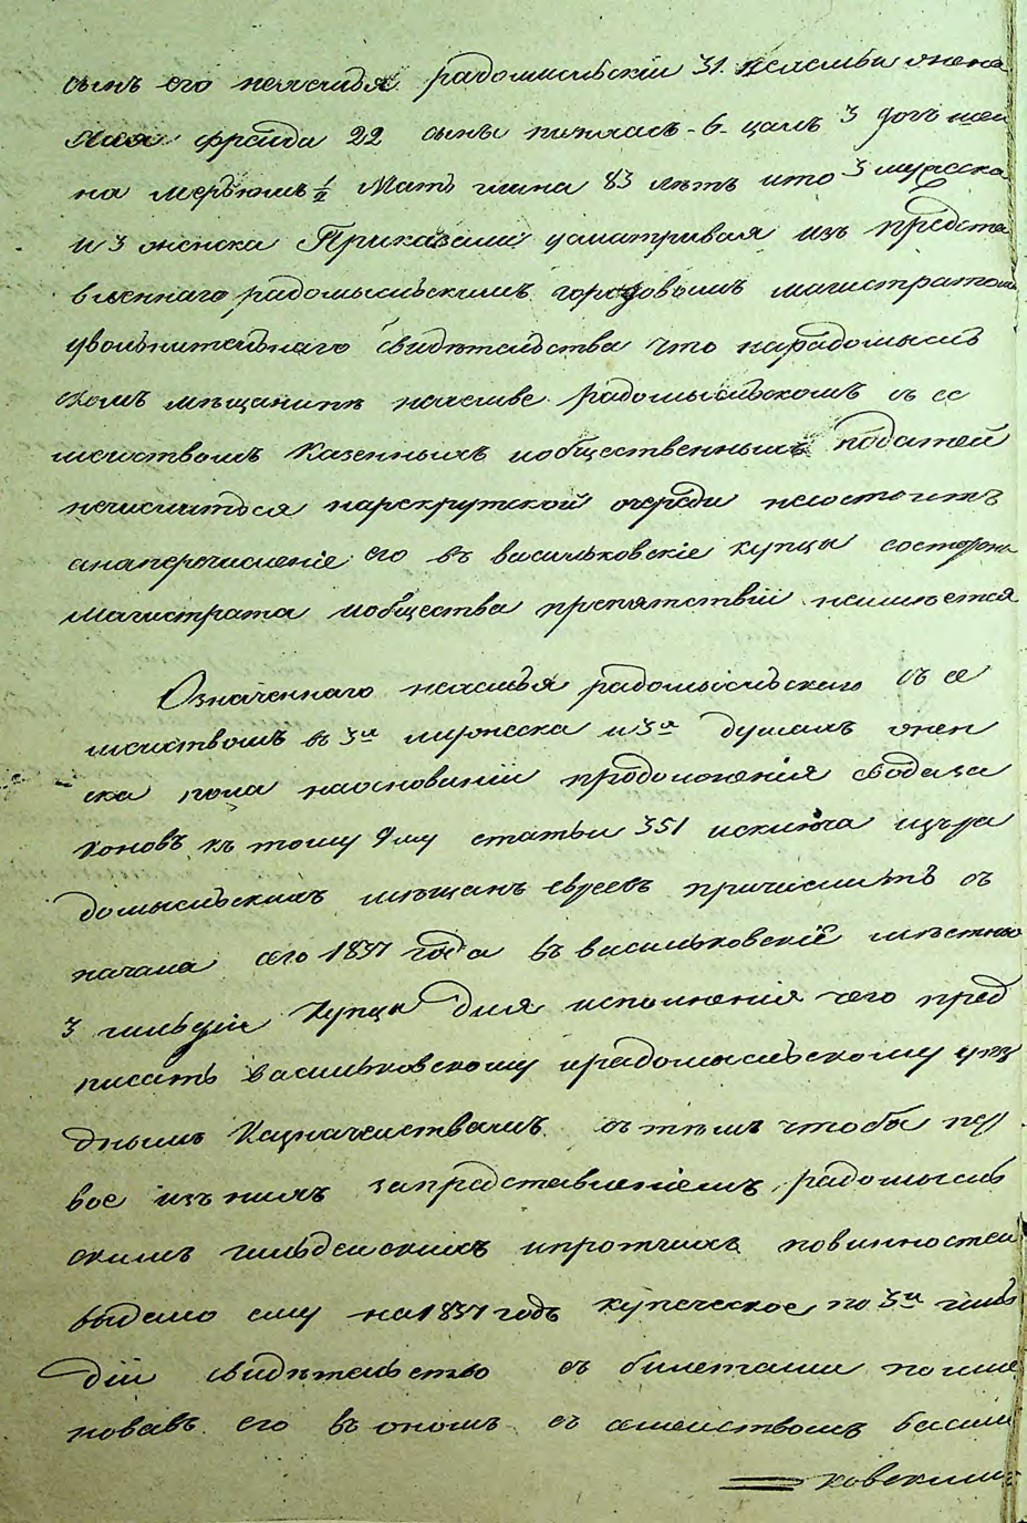 сынъ его радомысльскій 31. жена
Фрейда 22 сынъ пинхасъ - 6 - 3 дочь
на ½ Мать 83 лѣтъ ито 3 мужеска
и 3 женска Приказали усматривая изъ предста
вленнаго радомысльскимъ городовымъ магистратомъ
увольнительнаго свидѣтельства что нарадомысль
скомъ мѣщанинѣ радомысльскомъ съ се
мействомъ казенныхъ иобщественныхъ податей
нечислится нарекрутской очереди несостоитъ
анаперечисленіе его въ васильковскіе купцы состороны
магистрата иобщества препятствій неимѣется
Означеннаго радомысльскаго съ се
мействомъ въ 3хъ мужеска и 3хъ душахъ жен
ска пола наоснованіи продолженія сводаза
коновъ къ тому 9му статьи 351 исключа изъра
домысльскихъ мѣщанъ евреевъ причислить съ
начала сего 1837 года въ васильковскіе мѣстные
3 гильдіи купцы для исполненія чего пред
писать васильковскому ирадомысльскому уѣз
днымъ казначействамъ съ тѣмъ чтобы пер
вое изъ нихъ запредставленіемъ радомысль
скимъ гильдейскихъ ипротчихъ повинностей
выдало ему на 1837 годъ купеческое по 3й гиль
діи свидѣтельство съ билетами поиме
новавъ его въ ономъ съ семействомъ василь
ковскимъ